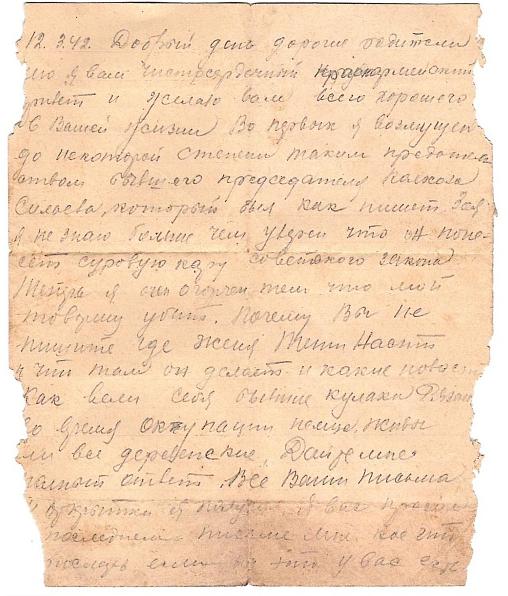 12.3.42. Добрый день дорогие родители
лю я вам чистосердечный красноармейский
привет и желаю вам всего хорошего
в Вашей жизни Во первых я возмущен
до некоторой степени таким предатель
ством бывшего председателя Колхоза
Силаева, который был как пишет
я не знаю больше чем уверен что он поне-
сет суровую кару советского закона
Теперь я очень огорчен тем что мой
товарищ убит. Почему Вы не
пишите где женя Тети Насти
и что там он делает и какие новости
Как вели себя бывшие кулаки
во время оккупации немцев, живы
ли все деревенские, Дайте мне
полный ответ. Все Ваши письма
и открытки я получил. Я вас
последнем письме мне кое что
послать если это у вас есть